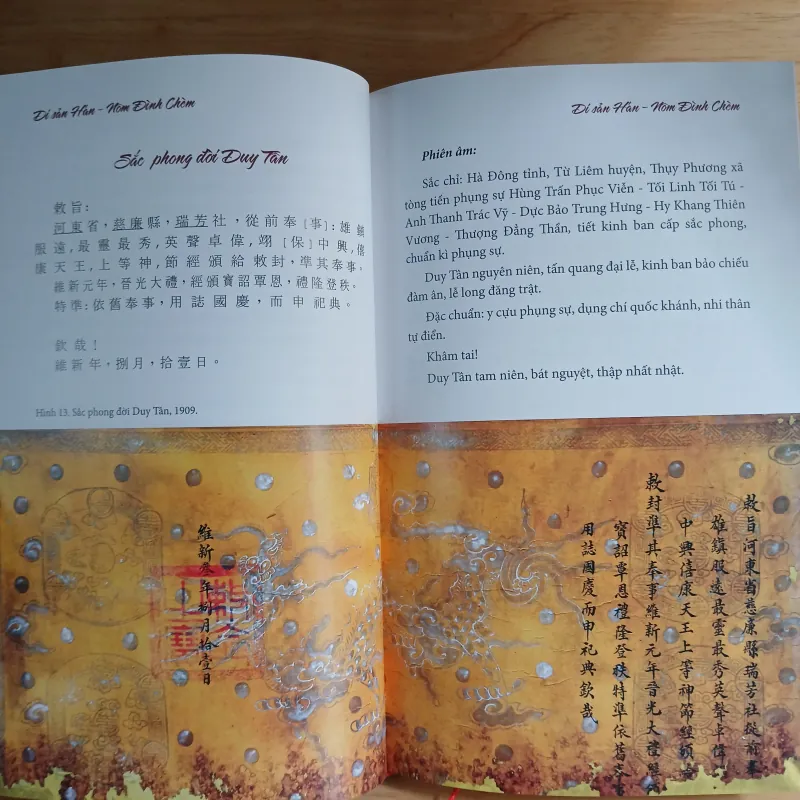 Di sản Hán - Nôm Đình Chèm
Sắc phong đời Duy Tân
敕旨:
河東省,慈廉縣,瑞芳社,從前奉[事]:雄鎮
服遠,最靈最秀,英聲卓偉,翊[保]中興,僖
康天王,上等神,節經頒給敕封,準其奉事。
維新元年,晉光大禮,經頒寶詔覃恩,禮隆登秩。
特準:依舊奉事,用誌國慶,而申祀典。
欽哉!
維新年,捌月,拾壹日。
Hình 13. Sắc phong đời Duy Tân, 1909.
Di sản Hán - Nôm Đình Chèm
Phiên âm:
Sắc chỉ: Hà Đông tỉnh, Từ Liêm huyện, Thụy Phương xã
tòng tiền phụng sự Hùng Trấn Phục Viễn - Tối Linh Tối Tú -
Anh Thanh Trác Vỹ - Dực Bảo Trung Hưng - Hy Khang Thiên
Vương - Thượng Đẳng Thần, tiết kinh ban cấp sắc phong,
chuẩn kì phụng sự.
Duy Tân nguyên niên, tấn quang đại lễ, kinh ban bảo chiếu
đàm ân, lễ long đăng trật.
Đặc chuẩn: y cựu phụng sự, dụng chí quốc khánh, nhi thân
tự điển.
Khâm tai!
Duy Tân tam niên, bát nguyệt, thập nhất nhật.
敕旨河東省慈廉縣瑞芳社從前奉
雄鎮服遠最靈最秀英聲卓偉
中興僖康天王上等神節經頒
敕封準其奉事維新元年晉光大禮經
寶詔覃恩禮隆登秩特準依舊奉
用誌國慶而申祀典欽哉
維新叄年捌月拾壹日